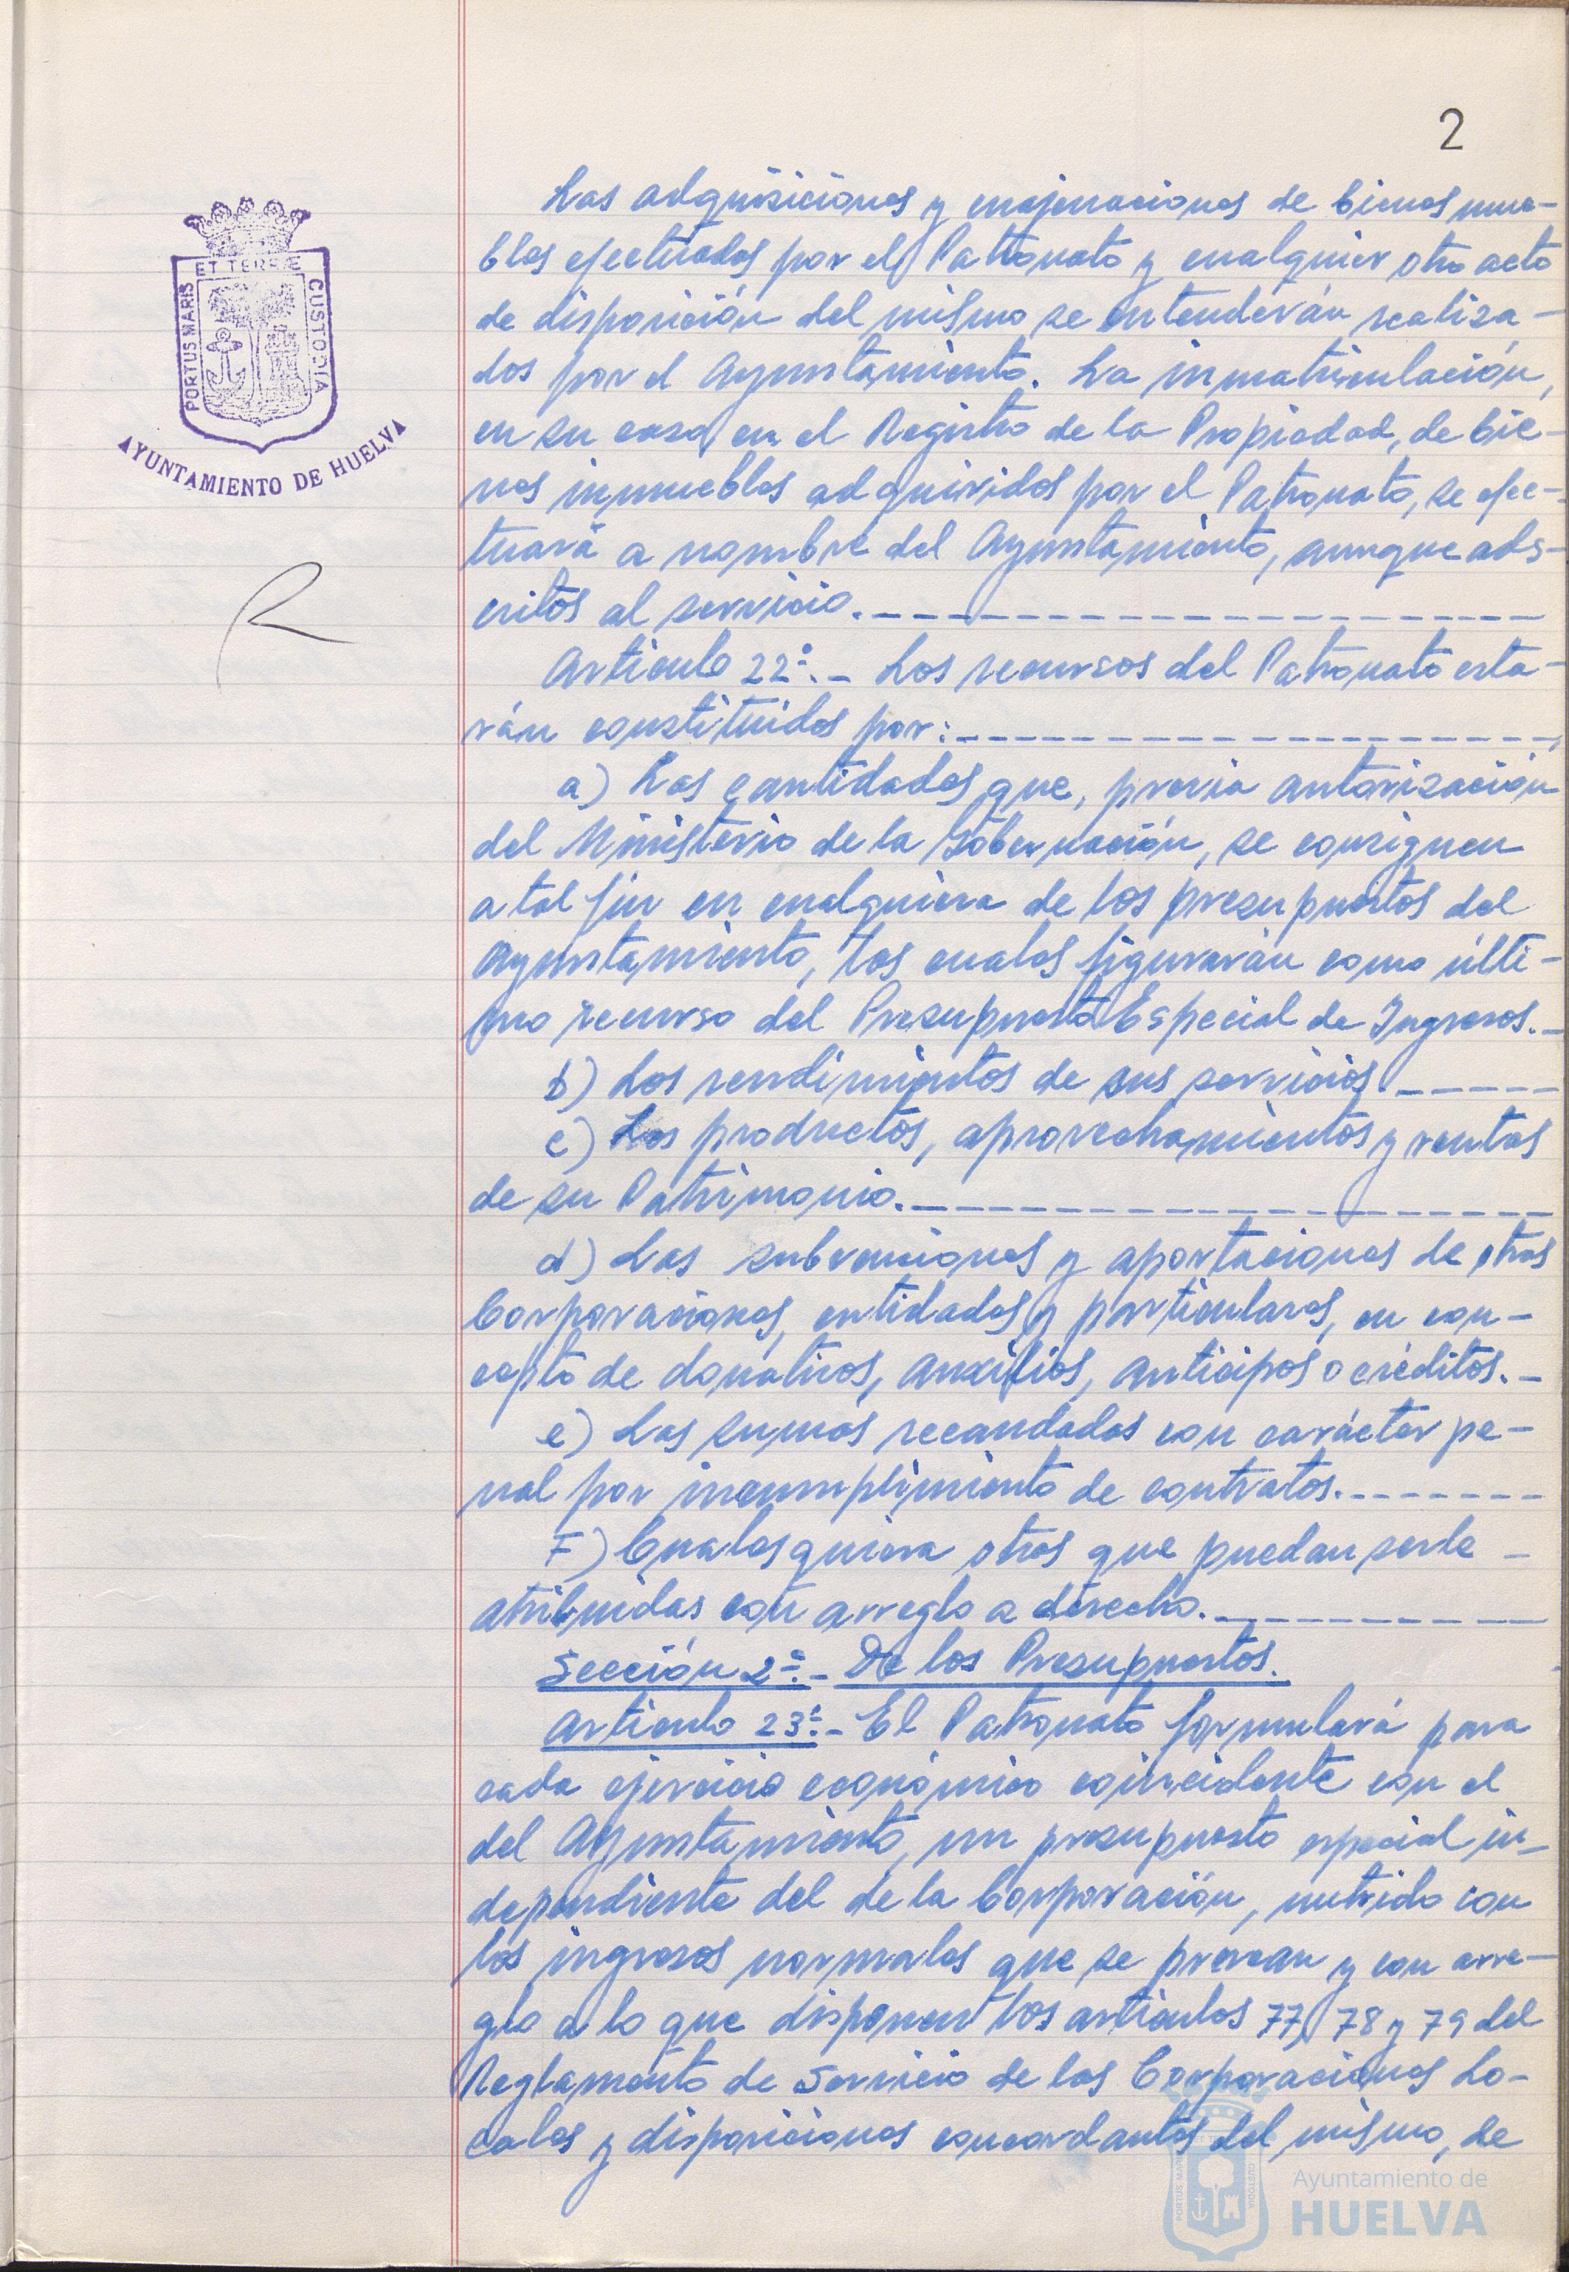 2
ET TERRAE
PORTUS MARIS
CUSTODIA
AYUNTAMIENTO DE HUELVA
R
Las adquisiciones y enajenaciones de bienes mue-
bles efectuados por el Patronato y cualquier otro acto
de disposición del mismo se entenderán realiza-
dos por el Ayuntamiento. La inmatriculación,
en su caso, en el Registro de la Propiedad, de bie-
nes inmuebles adquiridos por el Patronato, se efec-
tuará a nombre del Ayuntamiento, aunque ads-
critos al servicio.
Artículo 22º.- Los recursos del Patronato esta-
rán constituidos por:
a) Las cantidades que, previa autorización
del Ministerio de la Gobernación, se consignen
a tal fin en cualquiera de los presupuestos del
Ayuntamiento, las cuales figurarán como últi-
mo recurso del Presupuesto Especial de Ingresos.-
b) Los rendimientos de sus servicios.
c) Los productos, aprovechamientos y rentas
de su Patrimonio.
d) Las subvenciones y aportaciones de otras
Corporaciones, entidades y particulares, en con-
cepto de donativos, auxilios, anticipos o créditos.-
e) Las sumas recaudadas con carácter pe-
nal por incumplimiento de contratos.
F) Cualesquiera otros que puedan serle
atribuidas con arreglo a derecho.
Sección 2ª.- De los Presupuestos.
Artículo 23º.- El Patronato formulará para
cada ejercicio económico coincidente con el
del Ayuntamiento, un presupuesto especial in-
dependiente del de la Corporación, nutrido con
los ingresos normales que se prevean y con arre-
glo a lo que disponen los artículos 77, 78 y 79 del
Reglamento de Servicio de las Corporaciones Lo-
cales y disposiciones concordantes del mismo, de
PORTUS MARIS
CUSTODIA
Ayuntamiento de
HUELVA